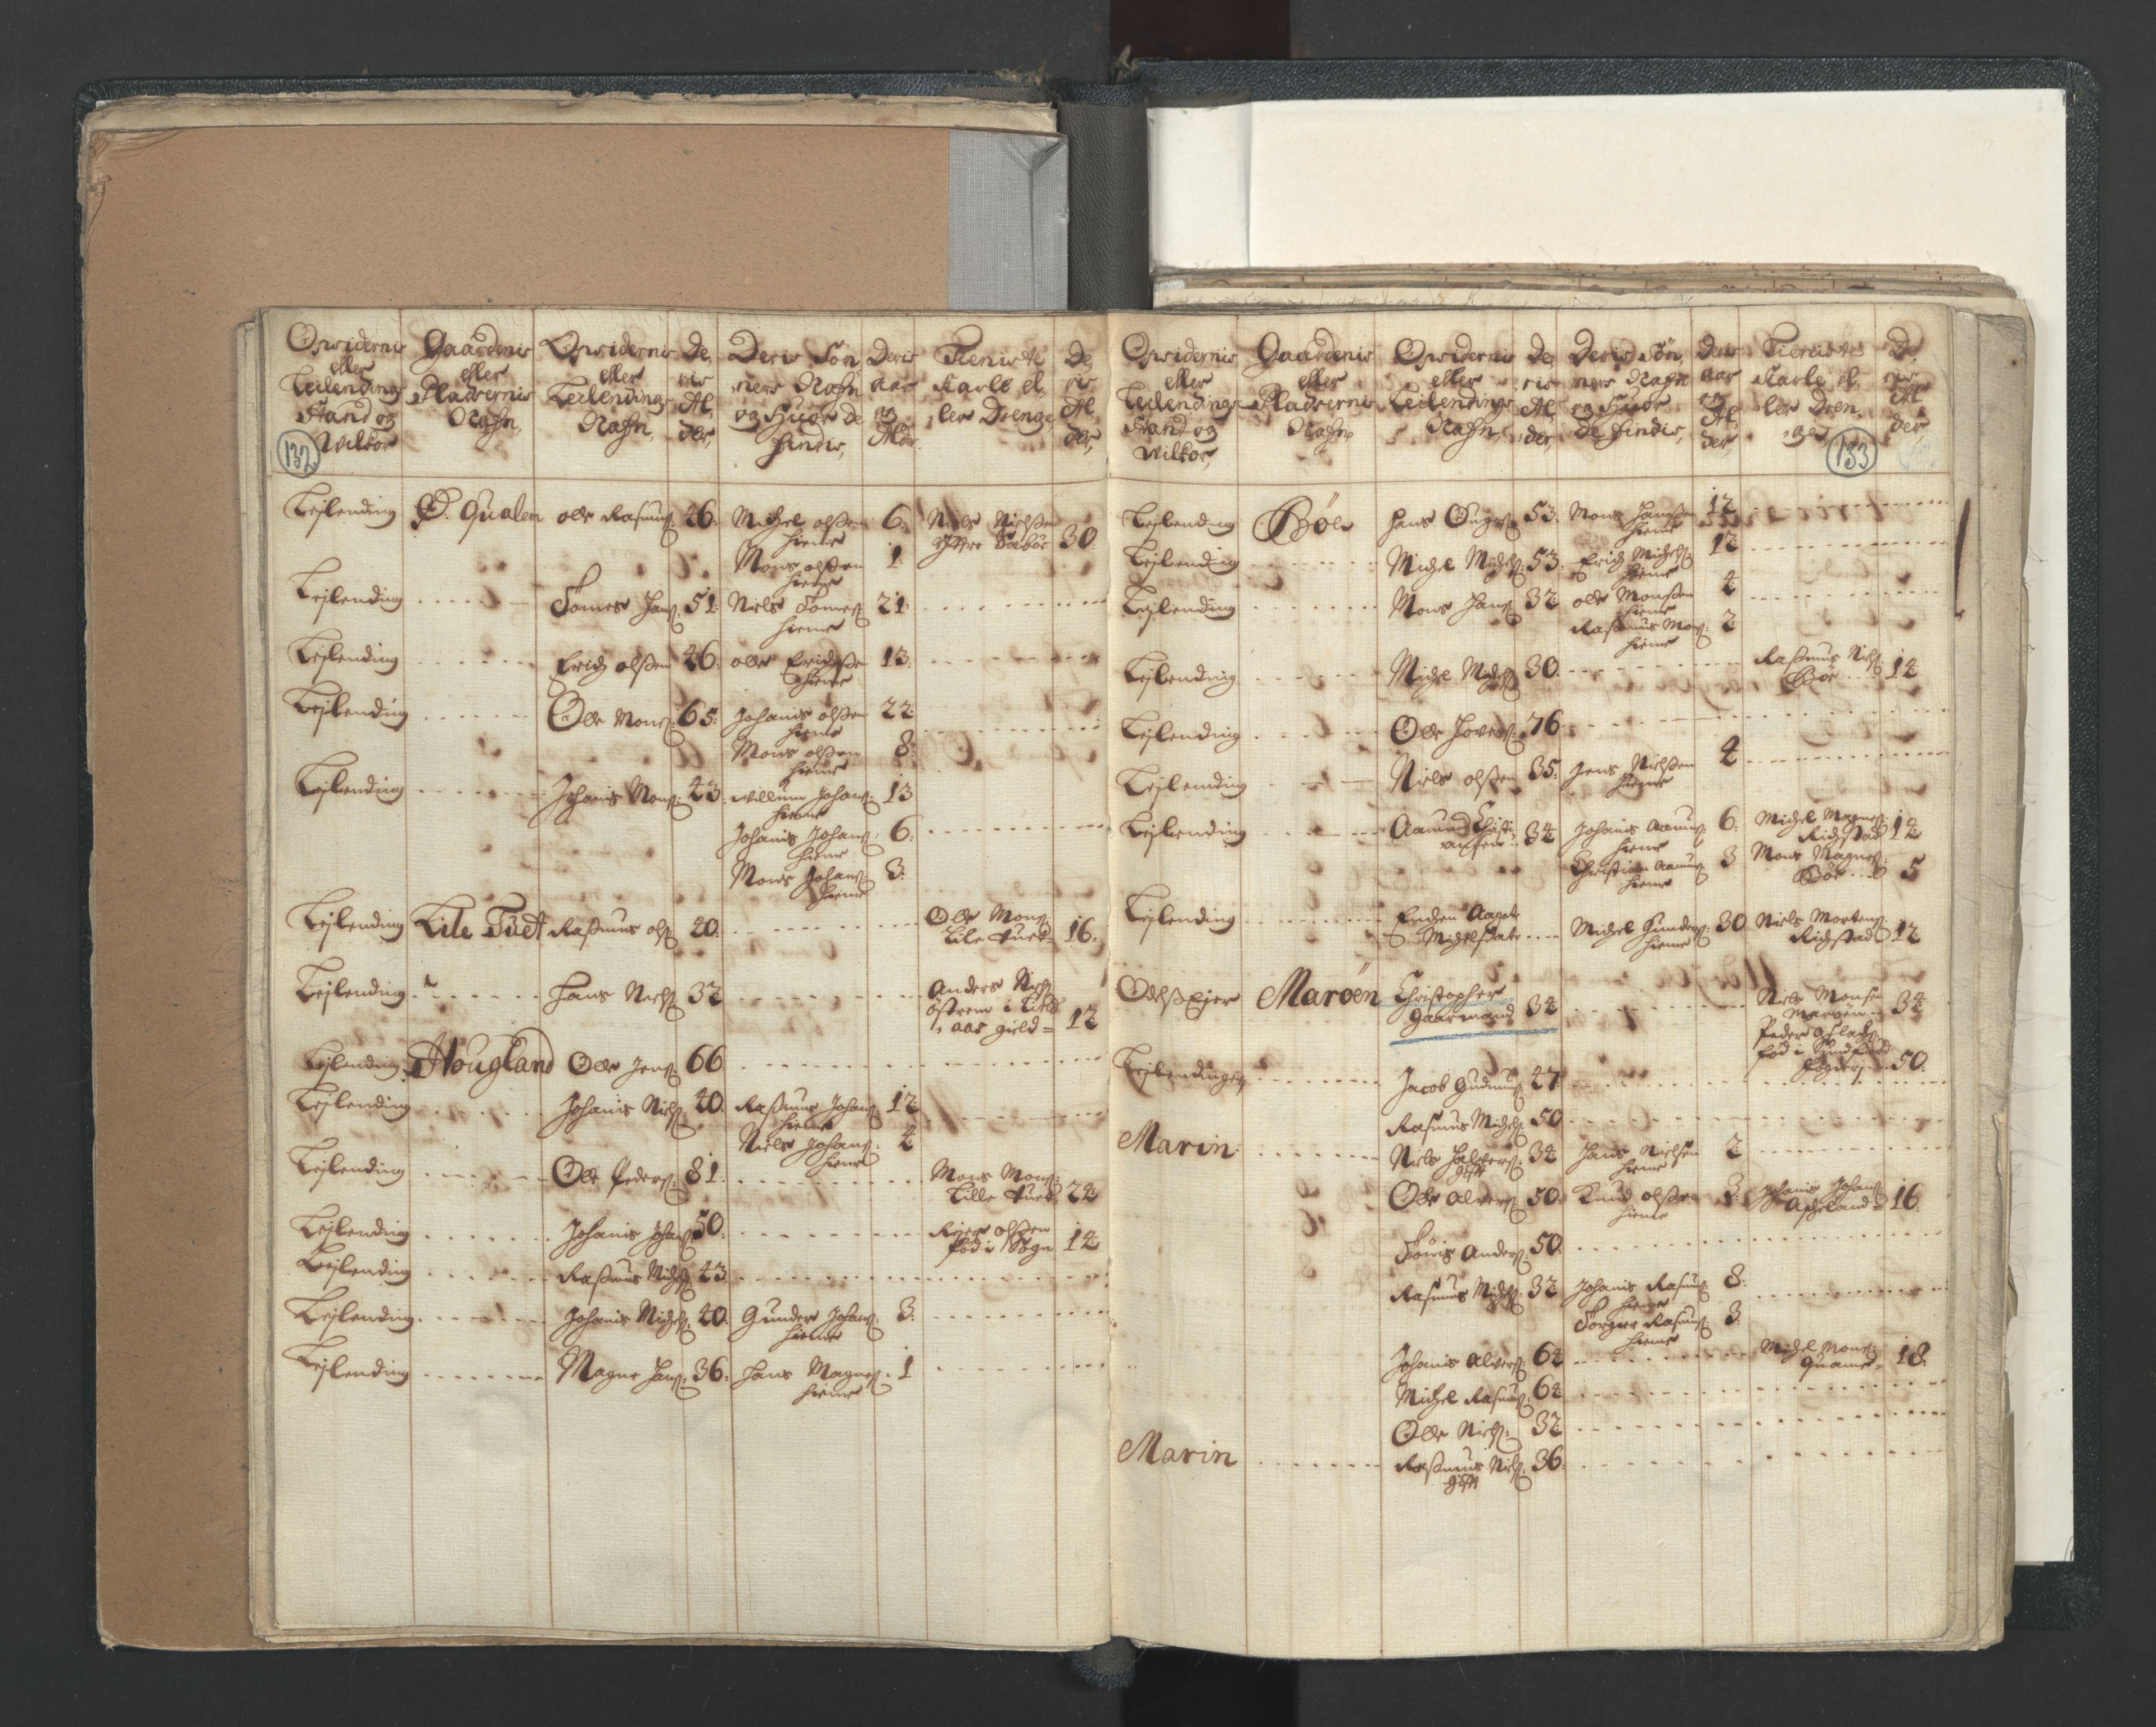 Opsidernis eller Leilendings Stand og Wilkor
Gaardenis eller Pladsernis Nafn,
Opsidernis eller Leilendings Nafn,
De,
ris
Al,
der,
Deris Søn
ners Nafn
og Huor de
findis,
Deris
aar
og
Alder
Tieniste
Karle el,
ler Drenge
De
ris
Al,
der,
132
Lejlending Ø. Qualen olle Rasmus: 46. Michel olsen 6. Niels Nielsen
hieme Yttre 30.
Mons olsen 1.
hieme
Lejlending Tomes Hans: 51. Niels Tomes: 21.
hieme
Lejlending Erich olsen 46. olle Erichsen 13.
hieme
Lejlending Olle Mons: 65. Johanis olsen 22.
hieme
Mons olsen 8.
hieme
Lejlending Johanis Mons: 43. willum Johans: 13
hieme
Johanis Johans: 6.
hieme
Mons Johans: 3.
hieme
Lejlending Lile Tuet Rasmus ols: 40. Olle Mons:
Lile tuet 16.
Lejlending Hans Niels: 32 Anders Niels:
12
Lejlending Hougland Olle Jens: 66
Lejlending Johanis Niels: 40. Rasmus Johans: 12
hieme
Niels Johans: 4
hieme
Lejlending Olle Peders: 81. Mons Mons:
Lille tuet 24
Lejlending Johanis Johans: 50. olsen
fød i Sogn 14
Lejlending Rasmus Michels: 43.
Lejlending Johanis Michels: 40. Gunder Johans: 3.
hieme
Lejlending Magne Hans: 36. Hans Magnes: 1
hieme
Opsidernis eller Leilendings Stand og Wilkor,
Gaardenis eller Pladsernis Nafn,
Opsidernis eller Leilendings Nafn,
De,
ris
Al,
der,
Deris Søn,
ners Nafn
og Huor
de findis,
Deris
aar
og
Al
der,
Tieniste
Karle el,
ler Dren,
ge,
De,
ris
Al
der
133
Lejlending Böe Hans 53. Mons Hansen 12
hieme
Lejlending Michel Michels: 53. Erich Michels: 12
hieme
Lejlending Mons Hans: 32 olle Monsen 4
hieme
Rasmus Mons: 2
hieme
Lejlending Michel Michels: 30. Rasmus Niels:
Böe 14
Lejlending Olle 76.
Lejlending Niels olsen 35. Jens Nielsen 4
hieme
Lejlending Aamund Christi,
ansen 34 Johanis Aamus: 6. Michel Magnes:
hieme Richstad 14
Christian Aamus: 3 Mons Magnes:
hieme Böe 5
Lejlending Enchen Aagate
Michelsdatr Michel Gunders: 30 Niels Mortens:
hieme Richstad 12
Odelss Ejer Maröen Christopher
Gaarmand 34 Niels Monsen
Maröen 34
Peder
fød i
fogderj 50.
Lejlendinger Jacob Gudmus: 47.
Rasmus Michels: 50
Marin. Niels Halvers: 34 Hans Nielsen 2
gift hieme
Olle Alvers: 50. Knud olsen 3. Johanis Johans:
hieme 16.
Töris Anders: 50.
Rasmus Michels: 32 Johanis Rasmus: 8.
hieme
Torger Rasmus: 3.
hieme
Johanis Alvers: 64 Michel Mons:
Quame 18.
Michel Rasmus: 64
Olle Niels: 32
Marin Rasmus Niels: 36.
gift